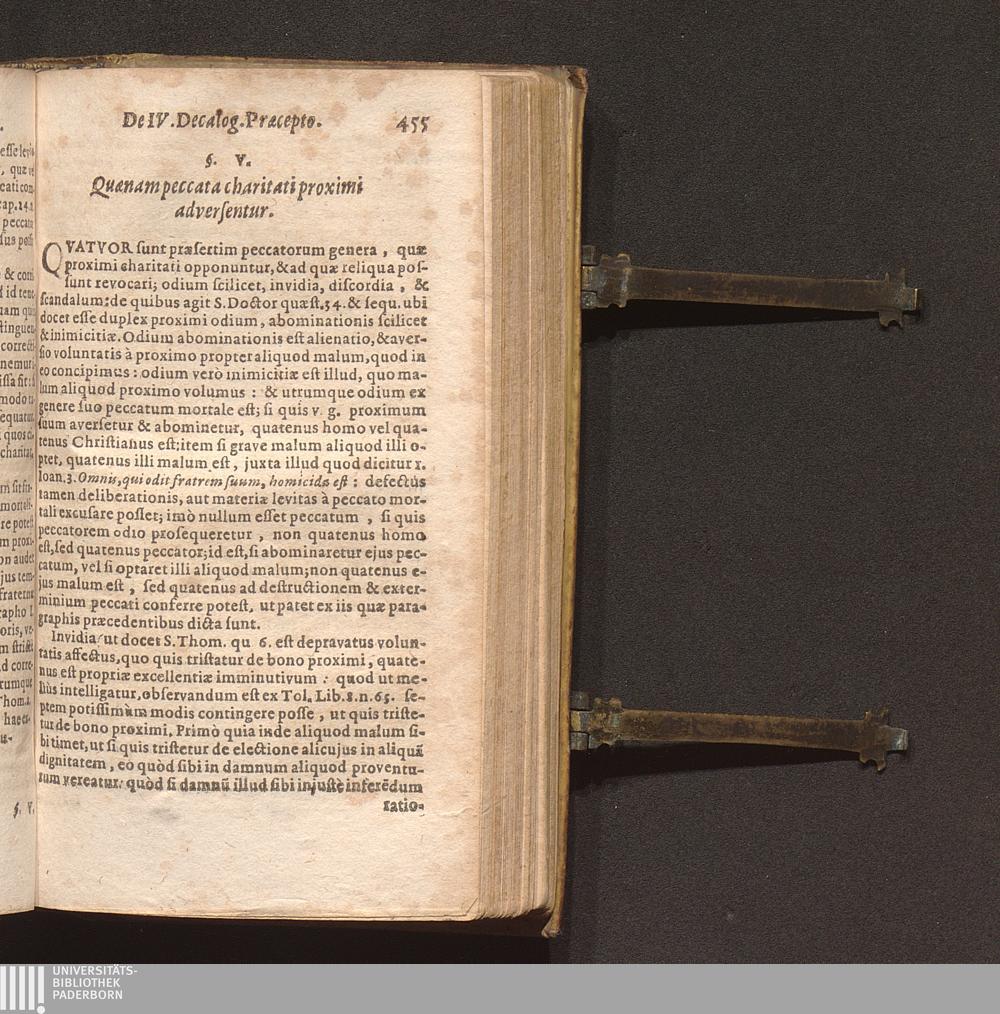 De IV. Decalog. Præcepto. 455
§. V.
Quænam peccata charitati proximi
adverſentur.
QVATVOR ſunt præſertim peccatorum genera, quæ
proximi charitati opponuntur, & ad quæ reliqua poſ-
ſunt revocari; odium ſcilicet, invidia, diſcordia, &
ſcandalum: de quibus agit S. Doctor quæſt. 34. & ſequ. ubi
docet eſſe duplex proximi odium, abominationis ſcilicet
& inimicitiæ. Odium abominationis eſt alienatio, & aver-
ſio voluntatis à proximo propter aliquod malum, quod in
eo concipimus: odium verò inimicitiæ eſt illud, quo ma-
lum aliquod proximo volumus: & utrumque odium ex
genere ſuo peccatum mortale eſt; ſi quis v. g. proximum
ſuum averſetur & abominetur, quatenus homo vel qua-
tenus Chriſtianus eſt; item ſi grave malum aliquod illi o-
ptet, quatenus illi malum eſt, juxta illud quod dicitur 1.
Ioan. 3. Omnis, qui odit fratrem ſuum, homicida eſt: defectus
tamen deliberationis, aut materiæ levitas à peccato mor-
tali excuſare poſſet; imò nullum eſſet peccatum, ſi quis
peccatorem odio proſequeretur, non quatenus homo
eſt, ſed quatenus peccator; id eſt, ſi abominaretur ejus pec-
catum, vel ſi optaret illi aliquod malum; non quatenus e-
jus malum eſt, ſed quatenus ad deſtructionem & exter-
minium peccati conferre poteſt, ut patet ex iis quæ para-
graphis præcedentibus dicta ſunt.
Invidia ut docet S. Thom. qu 6. eſt depravatus volun-
tatis affectus, quo quis triſtatur de bono proximi, quate-
nus eſt propriæ excellentiæ imminutivum: quod ut me-
liùs intelligatur, obſervandum eſt ex Tol. Lib. 8. n. 65. ſe-
ptem potiſſimùm modis contingere poſſe, ut quis triſte-
tur de bono proximi, Primò quia inde aliquod malum ſi-
bi timet, ut ſi quis triſtetur de electione alicujus in aliquã
dignitatem, eò quòd ſibi in damnum aliquod proventu-
rum vereatur: quòd ſi damnũ illud ſibi injuſtè inferẽdum
ratio-
§. V.
UNIVERSITÄTS-
BIBLIOTHEK
PADERBORN